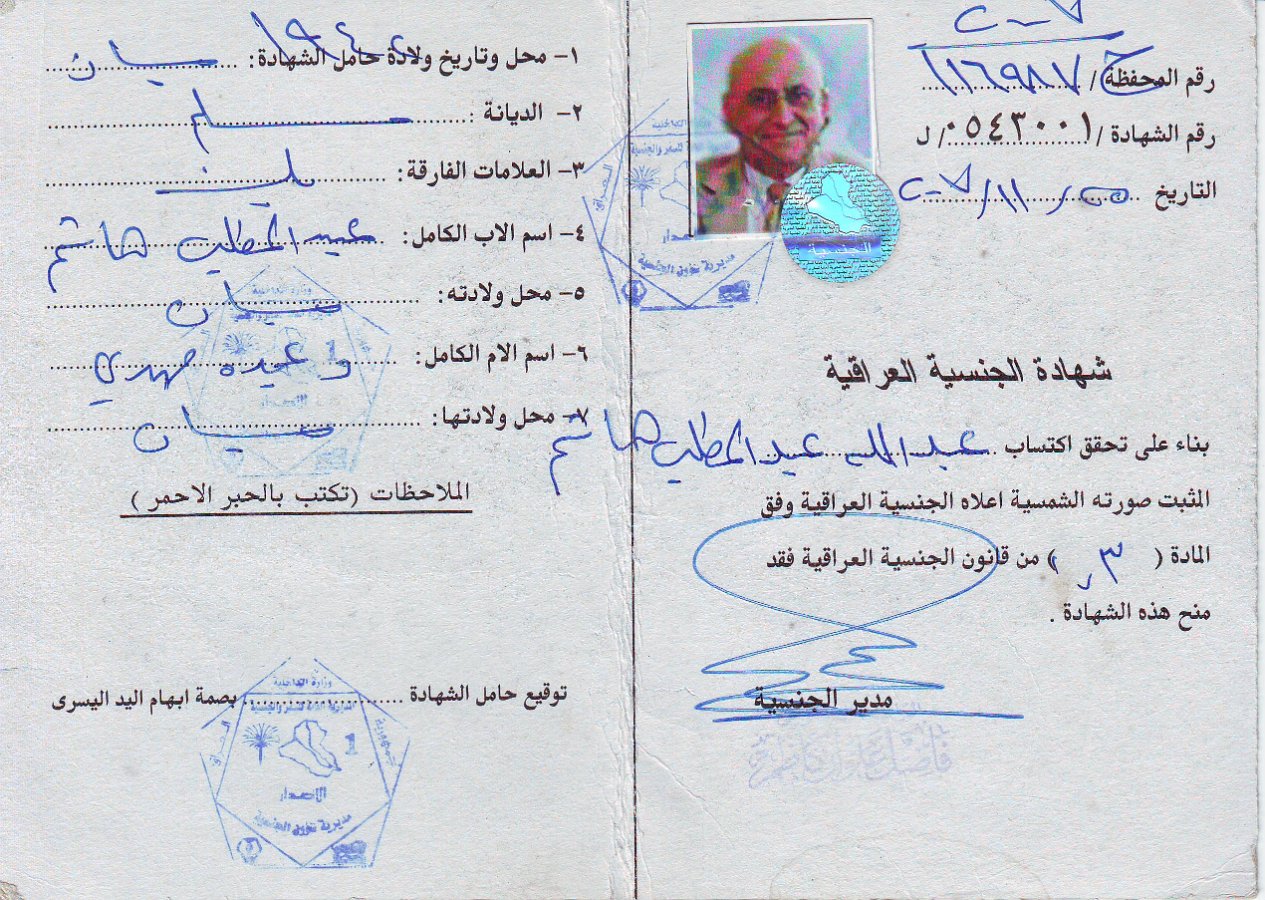 ٢٠٠٧
رقم المحفظة / ح ١١٦٩٨٧
رقم الشهادة / ٠٥٤٣٠٠١ / ل
التاريخ ٢٥ / ١١ / ٢٠٠٧
الجنسية
شهادة الجنسية العراقية
بناء على تحقق اكتساب عبد الله عبد المطلب هاشم
المثبت صورته الشمسية اعلاه الجنسية العراقية وفق
المادة ( ٣ ) من قانون الجنسية العراقية فقد
منح هذه الشهادة .
مدير الجنسية
١- محل وتاريخ ولادة حامل الشهادة: ميسان
٢- الديانة : مسلم
٣- العلامات الفارقة:
٤- اسم الاب الكامل: عبد المطلب هاشم
٥- محل ولادته: ميسان
٦- اسم الام الكامل: وحيده مهدي
٧- محل ولادتها: ميسان
الملاحظات (تكتب بالحبر الاحمر )
توقيع حامل الشهادة بصمة ابهام اليد اليسرى
وزارة الداخلية
الاصدار